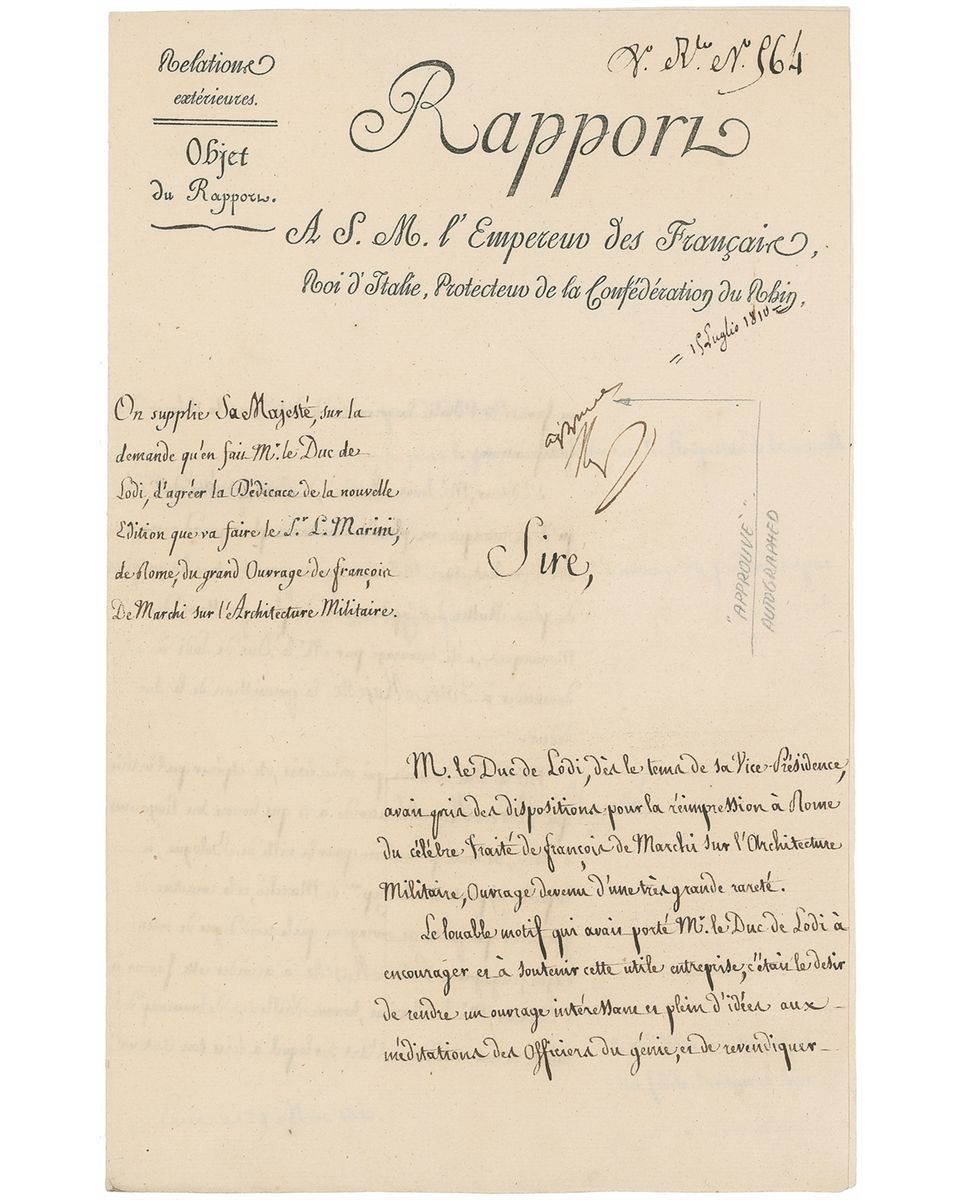 Relations
extérieures.
Objet
du Rapport.
Vo. Rto. No. 564
Rapport
A S. M. l'Empereur des Français,
Roi d'Italie, Protecteur de la Confédération du Rhin,
= 15 Luglio 1810 =
approuvé
"APPROUVÉ"
AUTOGRAPHED
On supplie Sa Majesté, sur la
demande qu'en fait Mr. le Duc de
Lodi, d'agréer la Dédicace de la nouvelle
Edition que va faire le Sr. L. Marini,
de Rome, du grand Ouvrage de françois
De Marchi sur l'Architecture Militaire.
Sire,
M. le Duc de Lodi, dès le tems de sa Vice-Présidence,
avait pris des dispositions pour la réimpression à Rome
du célébre Traité de françois de Marchi sur l'Architecture
Militaire, Ouvrage devenu d'une très grande rareté.
Le louable motif qui avait porté Mr. le Duc de Lodi à
encourager et à soutenir cette utile entreprise, c'était le desir
de rendre un ouvrage intéressant et plein d'idées aux
méditations des Officiers du génie, et de revendiquer